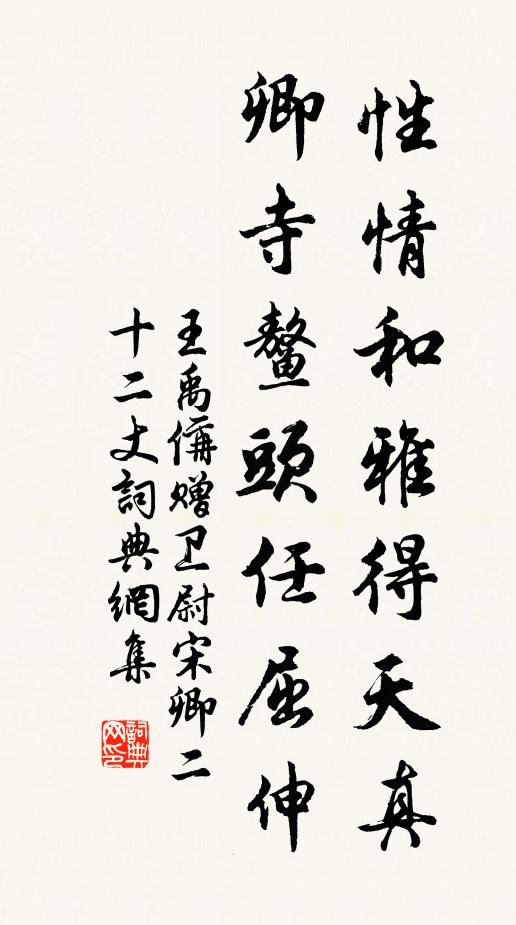 性情和雅得天真
卿寺鳌頭任屈伸
王禹偁贈卫尉宋卿二
十二丈詞典網集
詞典
网印